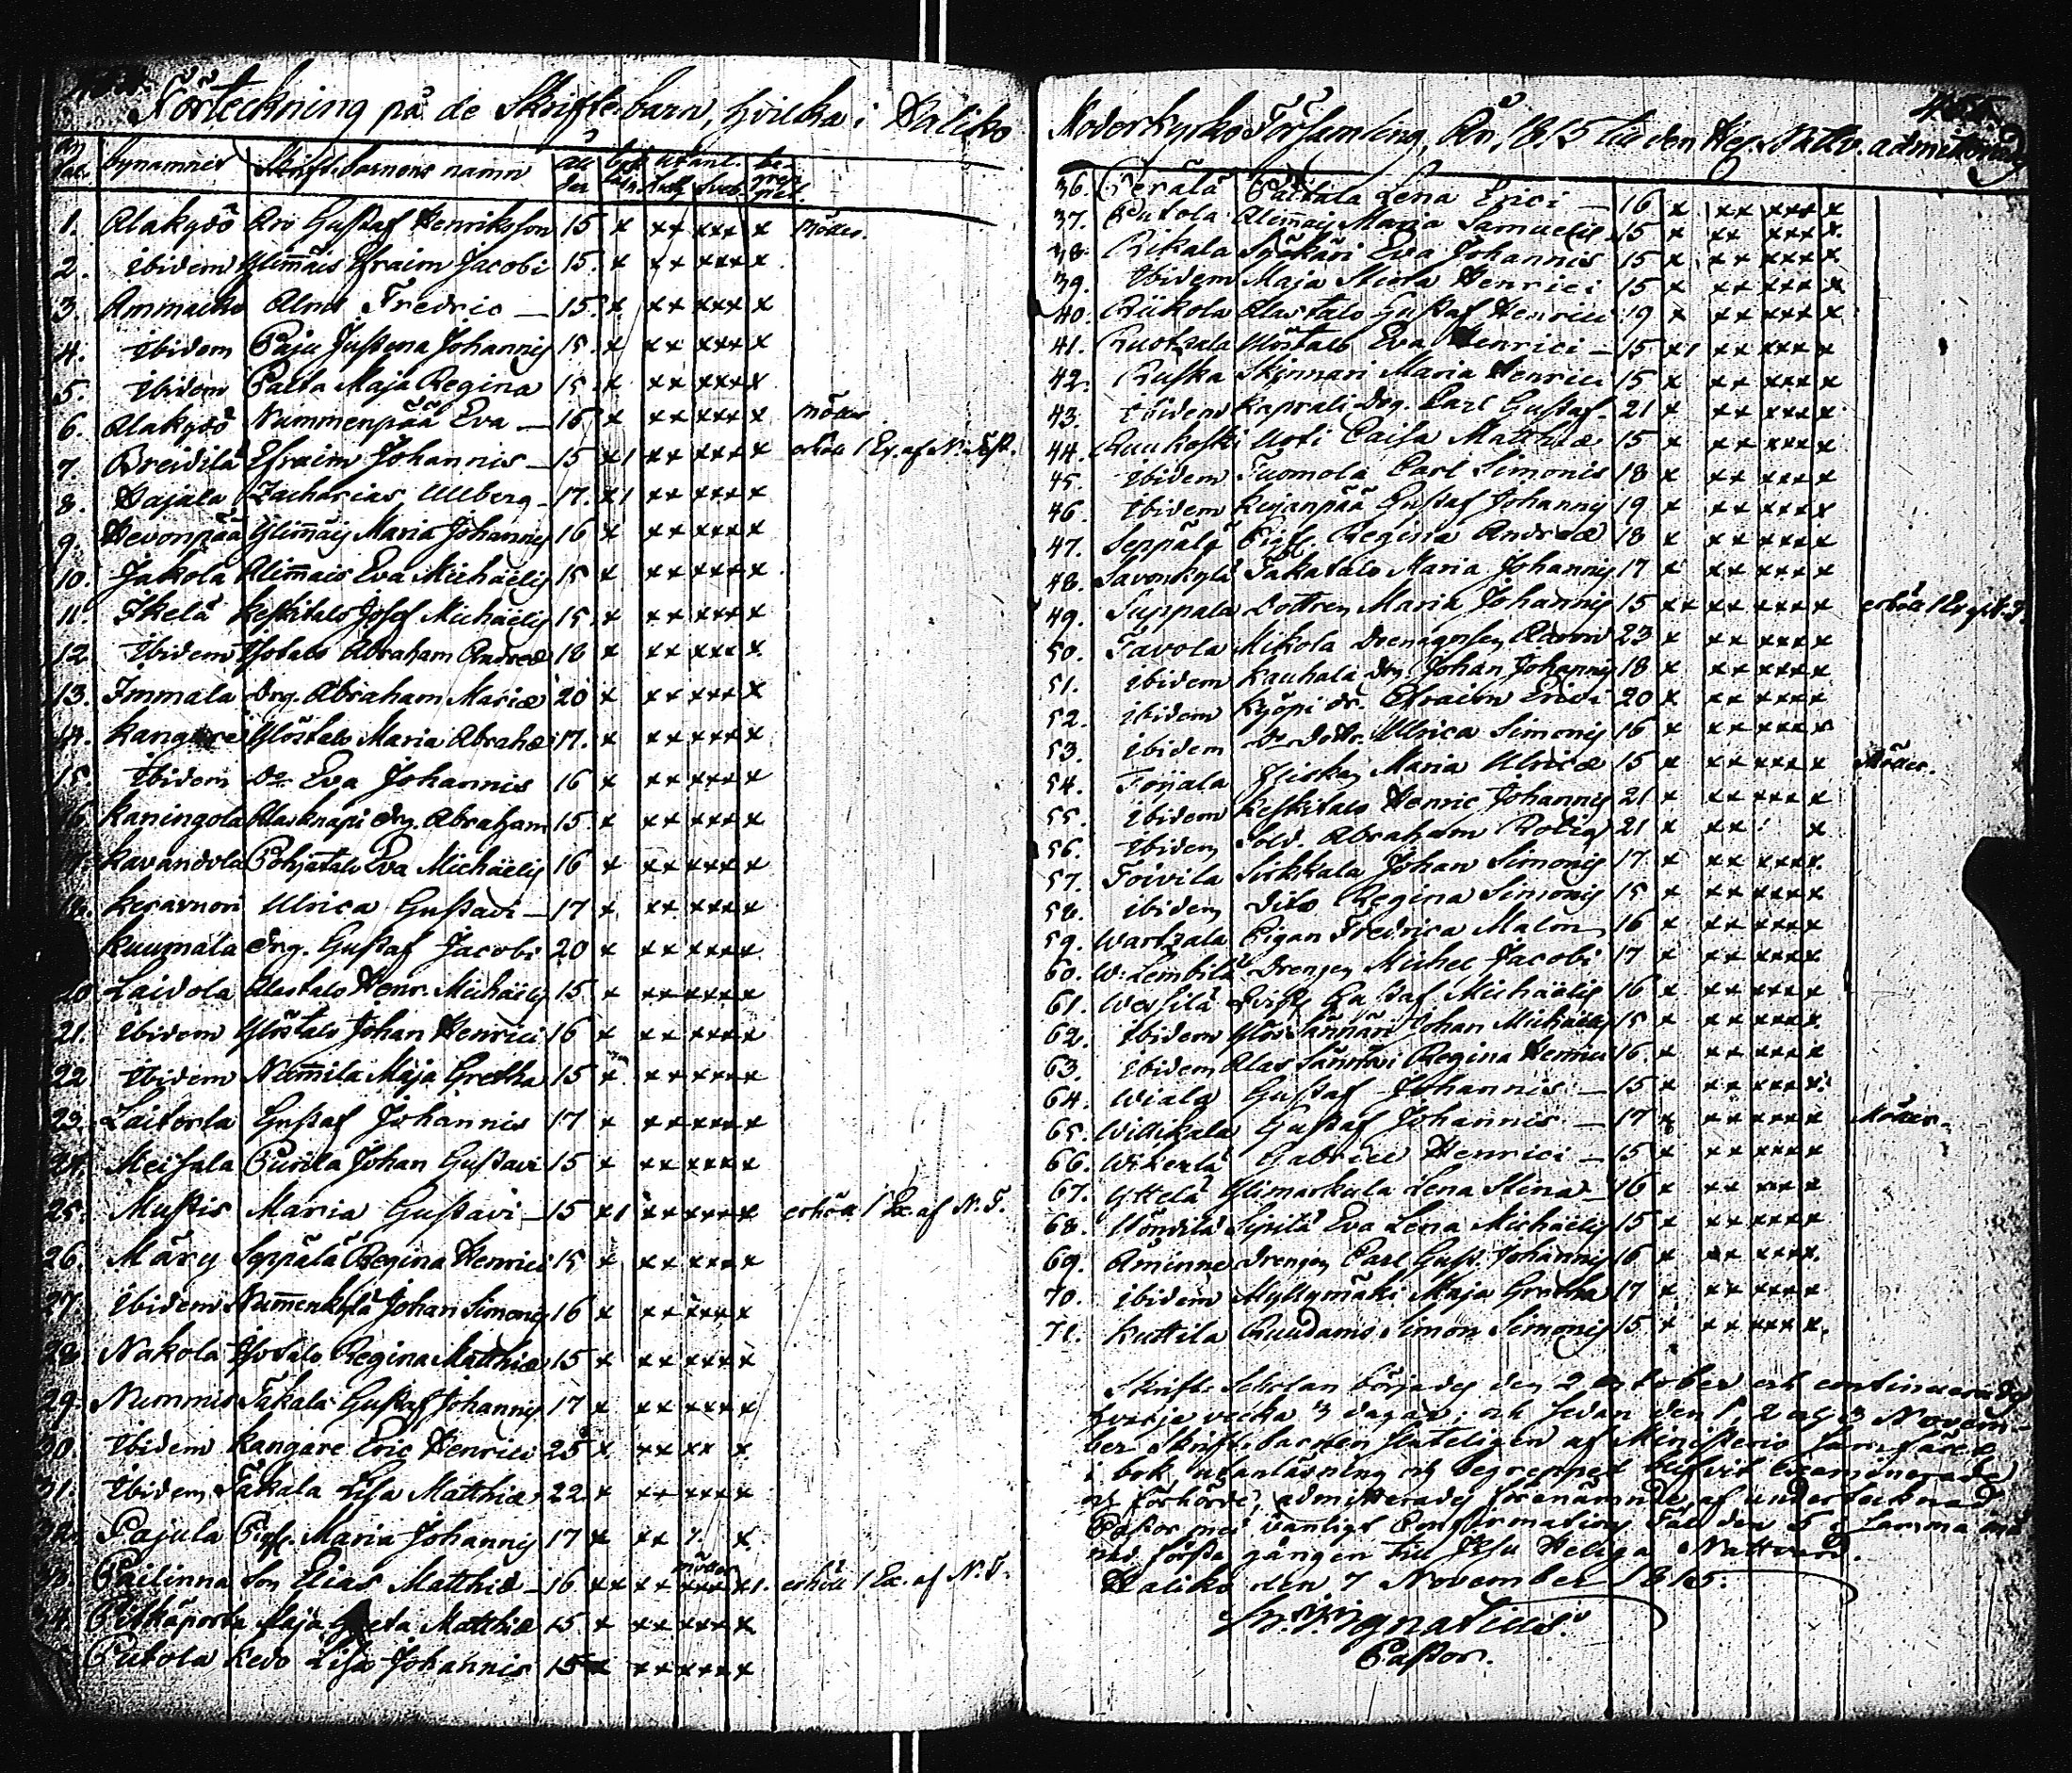 Förteckning på de Skriftebarn, hvilka i Haliko
bynamnen Skriftebarnens namn
1. Alakylö Aro Gustaf Henriksson 15 x xx xxx x möder.
2. ibidem Ylimäis Efraim Jacobi 15. x xx xxx x
3. Ammaiko Alnel Fredric — 15. x xx xxx x
4. ibidem Paju Justena Johannis 15. x xx xxx x
5. ibidem Palta Maja Regina 15. x xx xxx x
6. Alakylö Nummenpää Eva — 16 x xx xxx x möder
7. Breidilä Efraim Johannis — 15 x1 xx xxx x erhöll 1 Ex. af N. Test.
8. Hajala Zacharias Ulberg — 17. x1 xx xxx x
9. Hevonpää Ylimäis Maria Johannis 16 x xx xxx x
10. Jakola Alimais Eva Michaëlis 15 x xx xxx x
11. Ikelä Keskitalo Josef Michaëlis 15. x xx xxx x
12 Ibidem Isotalo Abraham Andreæ 18 x xx xxx x
13. Immala Drg. Abraham Mariæ 20 x xx xxx x
14. Kangare Ylöstalo Maria Abrahæ 17. x xx xxx x
15. Ibidem Do Eva Johannis 16 x xx xxx x
16. Kaningola Alasknapi Drg. Abraham 15 x xx xxx x
17. Kavandola Pohjatalo Eva Michaëlis 16 x xx xxx x
18. Keravuori Ulrica Gustavi — 17 x xx xxx x
Kuumala Drg. Gustaf Jacobi 20 x xx xxx x
20 Laidola Alastalo Henr. Michaëlis 15 x xx xxx x
21. Ibidem Ylöstalo Johan Henrici 16 x xx xxx x
22 Ibidem Nummila Maja Gretha 15 x xx xxx x
23. Laitorla Gustaf Johannis 17 x xx xxx x
24. Meisala Purila Johan Gustavi 15 x xx xxx x
25. Mustis Maria Gustavi — 15 x1 xx xxx x erhöll 1 Ex. af N. T.
26. Märy Seppälä Regina Henrici 15 x xx xxx x
27. Ibidem Nummenkylä Johan Simonis 16 x xx xxx x
28. Nakola Isotalo Regina Matthiæ 15 x xx xxx x
29. Nummis Takala Gustaf Johannis 17 x xx xxx x
30. Ibidem Kangare Eric Henrici 25 x xx xx x
31. Ibidem Takala Lisa Matthiæ 22. x xx xxx x
32. Pajula Pig. Maria Johannis 17 x xx x
33. Pailinna Son Elias Matthiæ — 16. xx xx xxx x1. erhöll 1 Ex. af N. T.
34. Pitkäporta Maja Greta Matthiæ 15 x xx xxx x
Putola Kedo Lisa Johannis 15 x xx xxx x
Moderkyrko Församling, År, 1815 till den Hel. Nattv. admitterades
36. Perälä Paitala Lena Erici — 16 x xx xxx x
37. Putola Alimais Maria Samuelis 15 x xx xxx x
38. Rikala Syökäri Eva Johannis 15 x xx xxx x
39. Ibidem Maja Stola Henrici 15 x xx xxx x
40. Riikola Alastalo Gustaf Henrici 19 x xx xxx x
41. Ruotzala Ylöstalo Eva Henrici — 15 x1 xx xxx x
42. Ruska Skinnari Maria Henrici 15 x xx xxx x
43. Ibidem Kaprali Drg. Carl Gustaf 21 x xx xxx x
44. Ruukoski Uoti Caisa Matthiæ 15 x xx xxx x
45. Ibidem Tuomola Carl Simonis 18 x xx xxx x
46. Ibidem Kujanpää Gustaf Johannis 19 x xx xxx x
47. Seppälä Pig. Regina Andreæ 18 x xx xxx x
48. Savonkylä Takatalo Maria Johannis 17 x xx xxx x
49. Suppala Dottren Maria Johannis 15 xx xx xxx x erhöll 1 Ex af N. T.
50. Tavola Mikola Drenagossen Adam 23 x xx xxx x
51. ibidem Kauhala drg Johan Johannis 18 x xx xxx x
52. ibidem Kyöpi dr. Efraim Erici 20 x xx xxx x
53. ibidem Do Dottr. Ulrica Simonis 16 x xx xxx x
54. Toijala Maria Ulricæ 15 x xx xxx x Möder.
55. ibidem Keskitalo Henric Johannis 21 x xx xxx x
56. ibidem Sold. Abraham Rolig 21 x xx x
57. Toivila Sirkkala Johan Simonis 17. x xx xxx x
58. ibidem dito Regina Simonis 15 x xx xxx x
59. Wartzala Pigan Fredrica Malm 16 x xx xxx x
60. W: Lembilä Drengen Michel Jacobi 17 x xx xxx x
61. Wessilä Gustaf Michaëlis 16 x xx xxx x
62. Ibidem Ylös Lännäri Johan Michaëlis 15 x xx xxx x
63. Ibidem Alas Lännäri Regina Henrici 16 x xx xxx x
64. Wiala Gustaf Johannis — 15 x xx xxx x
65. Willikala Gustaf Johannis — 17 x xx xxx x Möder.
66. Wikerlä Gabriel Henrici — 15 x xx xxx x
67. Yttelä Ylimarkula Lena Stina — 16 x xx xxx x
68. Yöndilä Sipilä Eva Lena Michaëlis 15 x xx xxx x
69. Åminne Drengen Carl Gust. Johannis 16 x xx xxx x
70. ibidem Myllymäki Maja Gretha 17 x xx xxx x
71. Kuttila Ruudams Simon Simonis 15 x xx xxx x
Skrift Scholan börjades den 2 October och continuerades
hvarje vecka 3 dagar; och sedan den 1, 2 och 3 Novem-
ber Skriftebarnen sluteligen af Ministerio samfäldt
i bok, utanläsning och begreppet blifvit examinerade
och förhörde, admitterades förenämnde, af undertecknad
Pastor med vanligt Confirmations Tal den 5 i samma må-
nad första gången till Jesu Heliga Nattvard.
Haliko den 7 November 1815.
Ignatius.
Pastor.